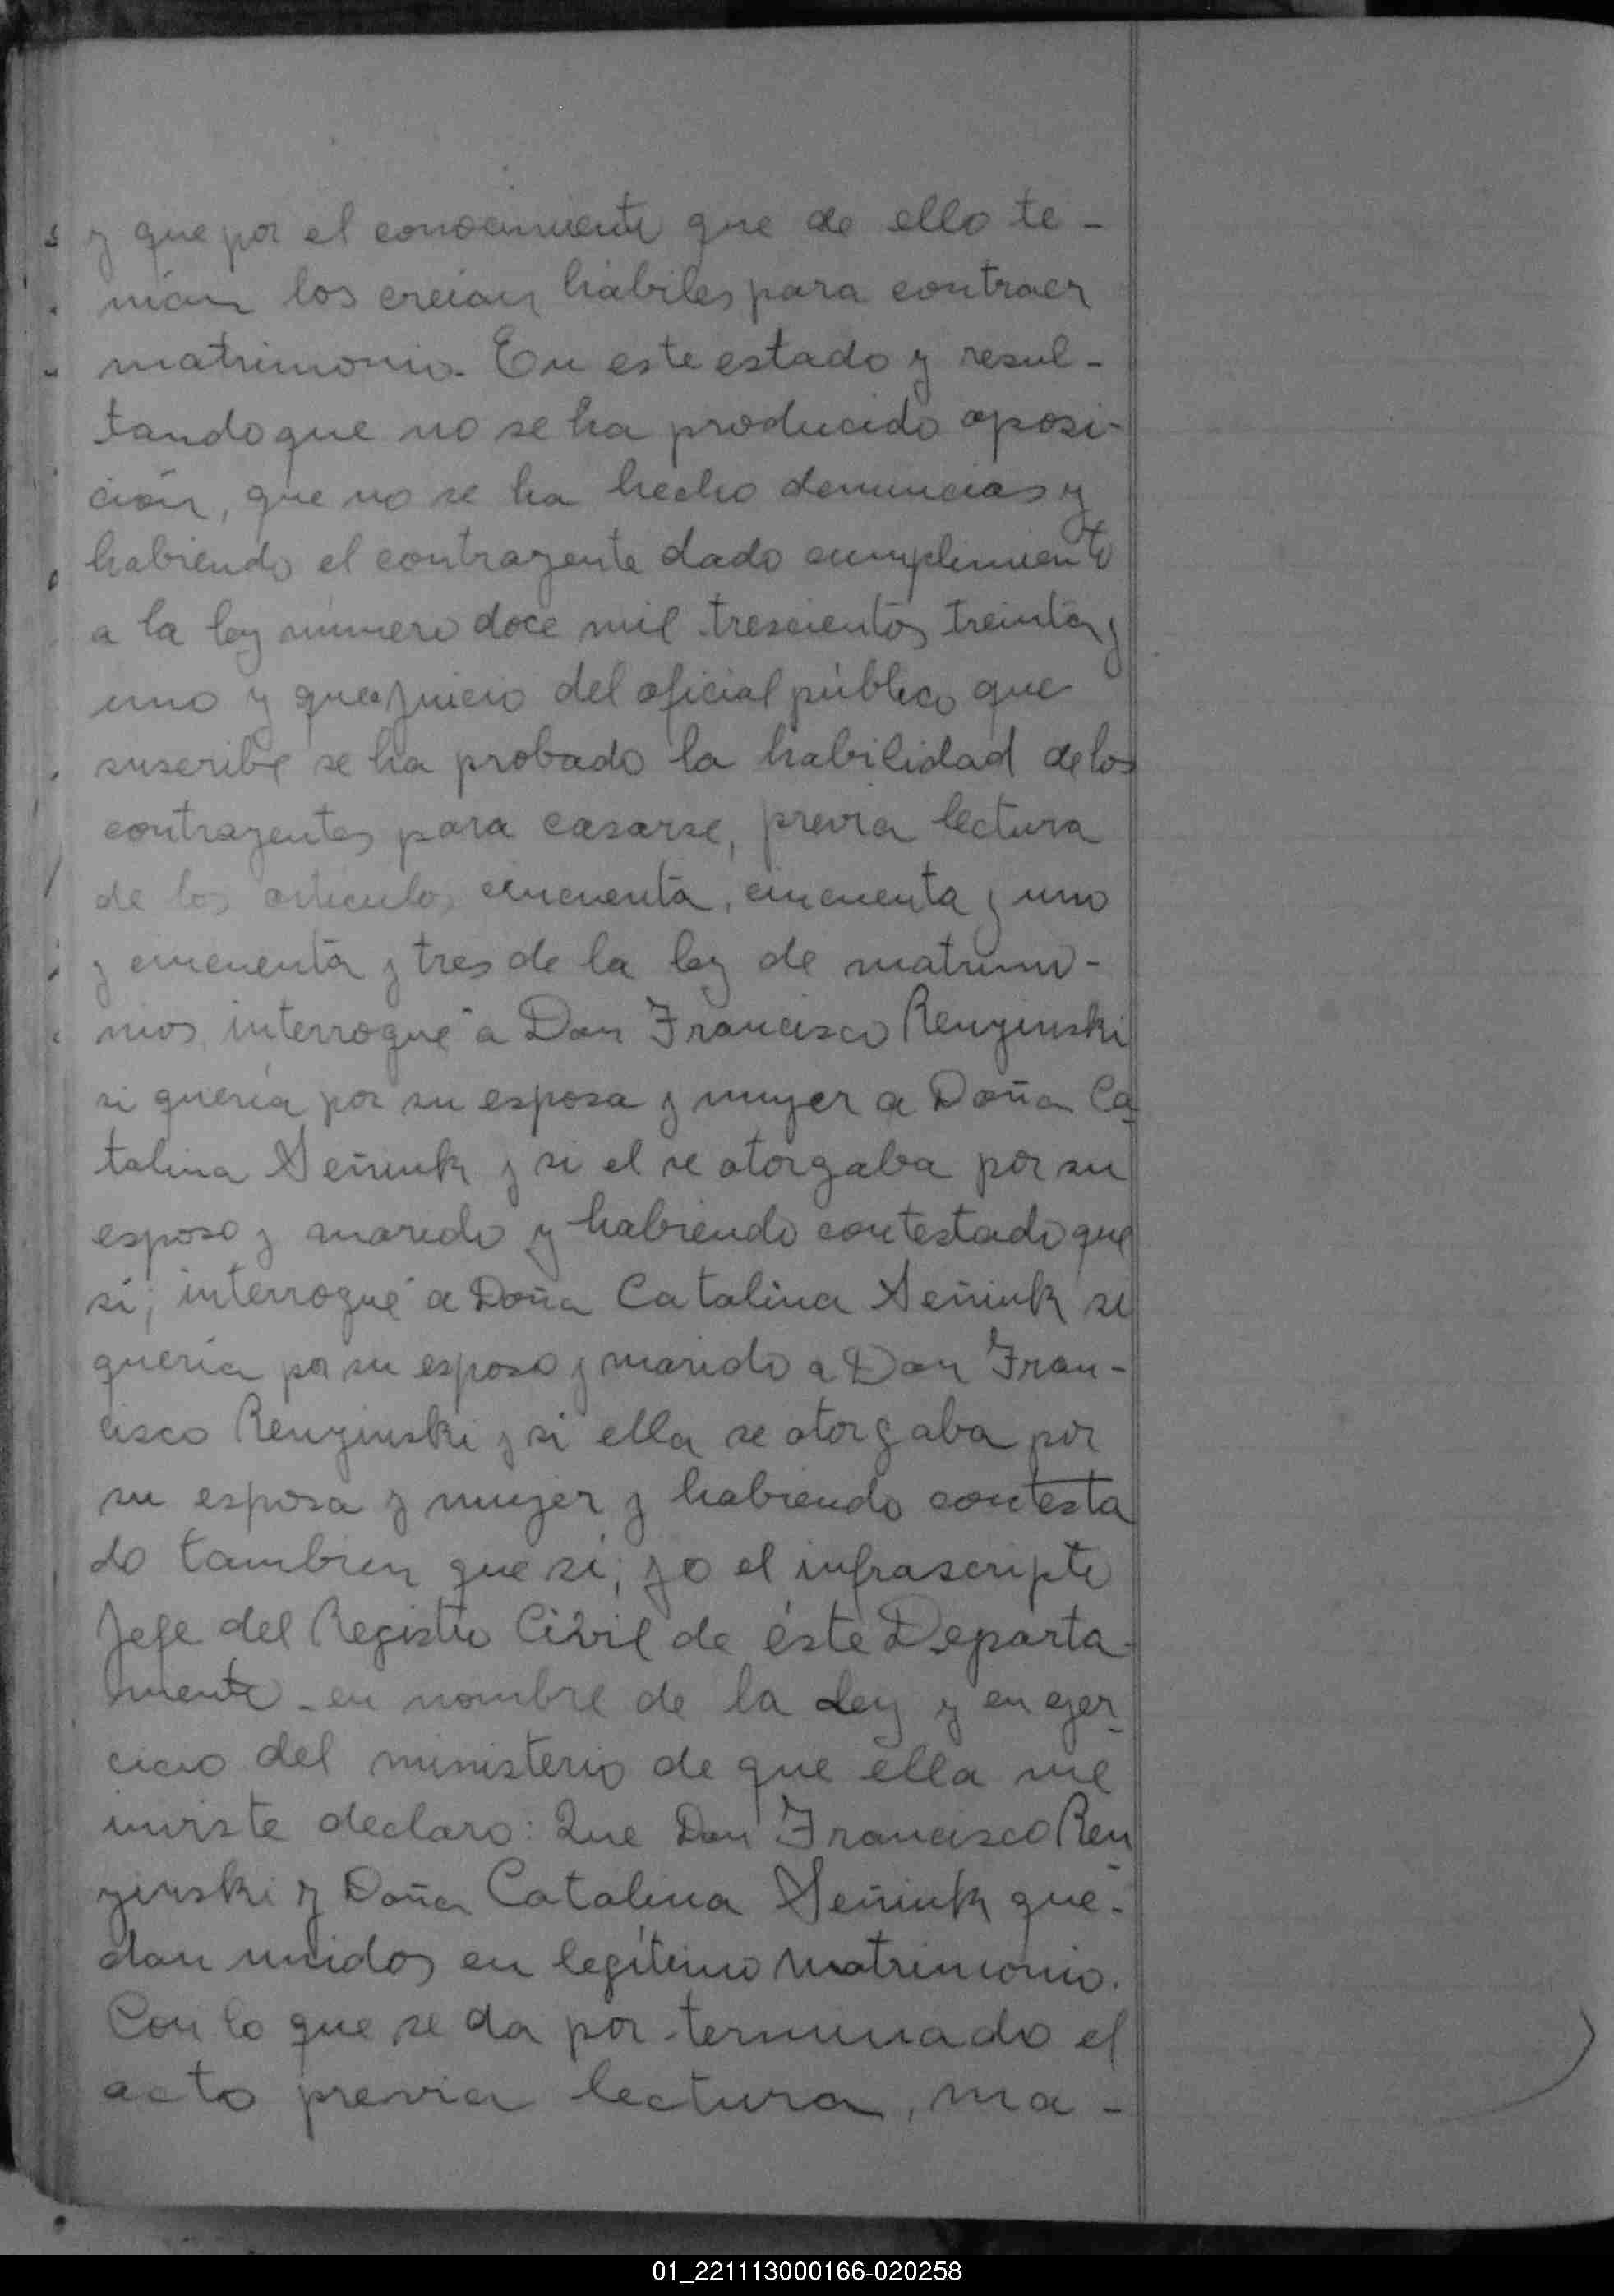 y que por el conocimiento que de ello te-
nían los creían hábiles para contraer
matrimonio. En este estado y resul-
tando que no se ha producido oposi-
ción, que no se ha hecho denuncias y
habiendo el contrayente dado cumplimiento
a la ley número doce mil trescientos treinta y
uno y que a juicio del oficial público que
suscribe se ha probado la habilidad de los
contrayentes para casarse, previa lectura
de los artículos cincuenta, cincuenta y uno
y cincuenta y tres de la ley de matrimo-
nios, interrogué a Don Francisco Renyinski
si quería por su esposa y mujer a Doña Ca-
talina Señiuk y si el se otorgaba por su
esposo y marido y habiendo contestado que
sí; interrogué a Doña Catalina Señiuk si
quería por su esposo y marido a Don Fran-
cisco Renyinski y si ella se otorgaba por
su esposa y mujer y habiendo contesta
do tambien que sí; yo el infrascripto
Jefe del Registro Civil de éste Departa-
mento - en nombre de la Ley y en ejer-
cicio del ministerio de que ella me
inviste declaro: Que Don Francisco Ren-
yinski y Doña Catalina Señiuk que-
dan unidos en legítimo Matrimonio.
Con lo que se da por terminado el
acto previa lectura, ma-
01_221113000166-020258